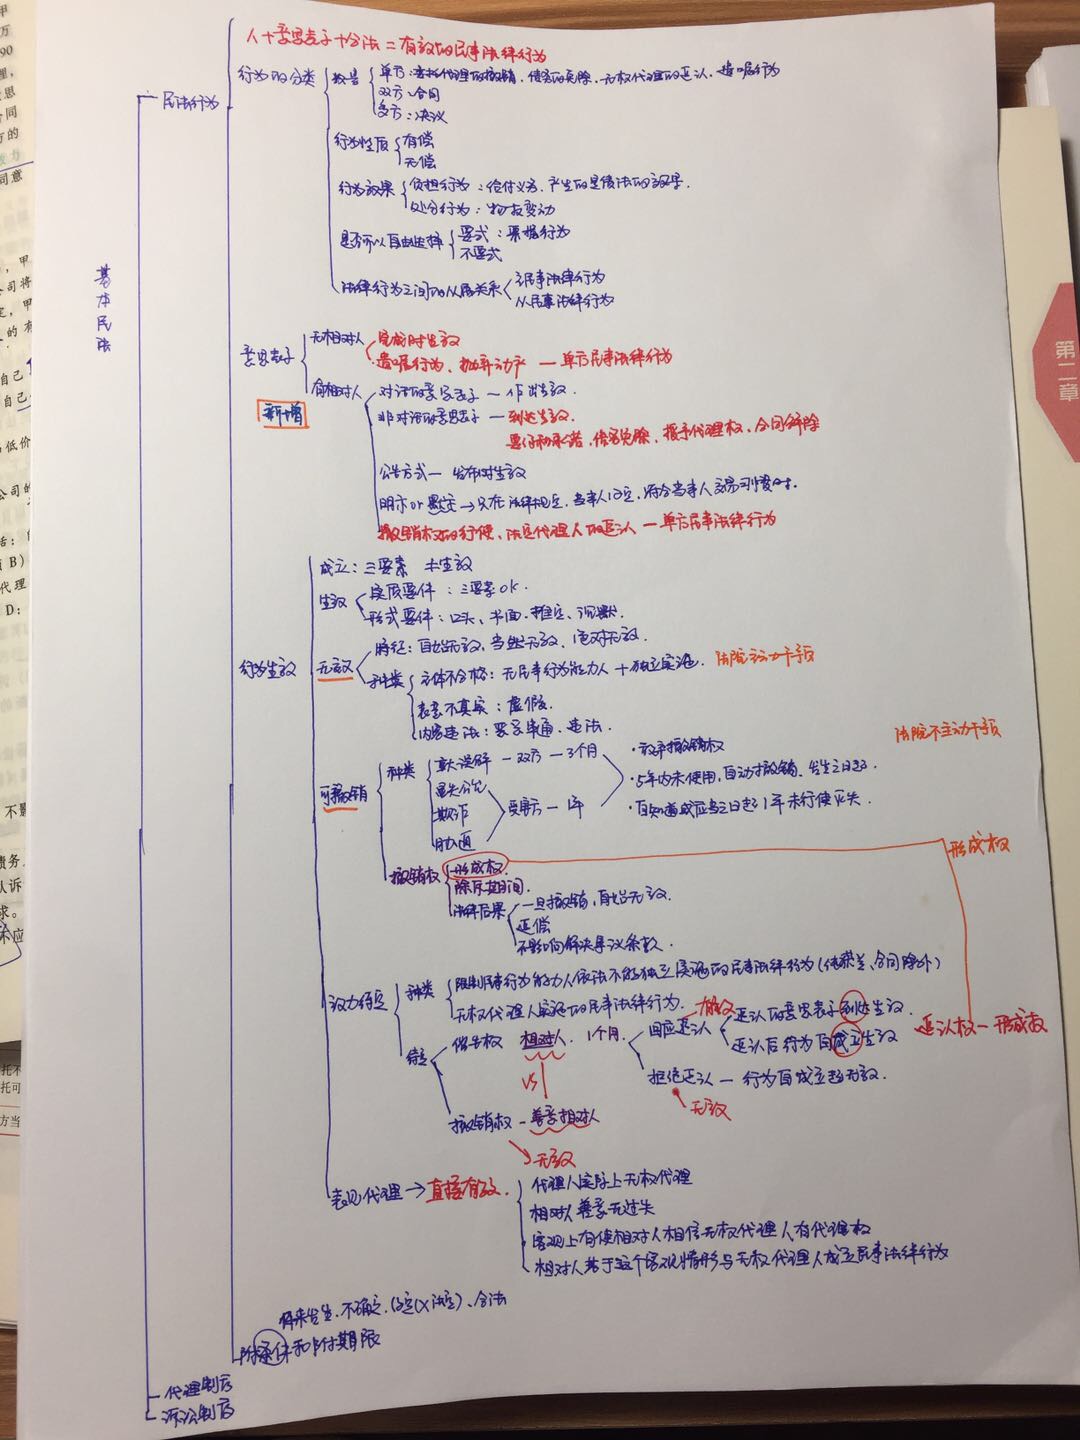 人+意思表示+合法=有效的民事法律行为
基本民法
民法行为
行为的分类
数量
单方:委托代理的撤销、债务的免除、无权代理的追认、遗嘱行为
双方:合同
多方:决议
行为性质
有偿
无偿
行为效果
负担行为:给付义务,产生的是债法的效果.
处分行为:物权变动
是否可以自由选择
要式:票据行为
不要式
法律行为之间的从属关系
主民事法律行为
从民事法律行为
意思表示
新增
无相对人
完成时生效
遗嘱行为、抛弃动产 — 单方民事法律行为
有相对人
对话的意思表示 — 作出生效.
非对话的意思表示 — 到达生效.
要约和承诺、债务免除、授予代理权、合同解除
公告方式 — 发布时生效
明示or默示→只在法律规定、当事人约定、符合当事人交易习惯时.
撤销权的行使、法定代理人的追认 — 单方民事法律行为
行为生效
成立:三要素 ≠生效
生效
实质要件:三要素ok.
形式要件:口头、书面、推定、沉默.
无效
特征:自始无效、当然无效、绝对无效.
种类
主体不合格:无民事行为能力人+独立实施.
法院主动干预
表意不真实:虚假.
内容违法:恶意串通、违法.
可撤销
种类
重大误解 — 双方 — 3个月
显失公平
欺诈
胁迫
受害方 — 1年
·放弃撤销权
·5年内未使用,自动撤销、发生之日起.
·自知道或应当之日起1年未行使灭失.
法院不主动干预
撤销权
形成权
除斥期间.
法律后果
一旦撤销,自始无效.
返偿
不影响解决争议条款.
形成权
效力待定
种类
限制民事行为能力人依法不能独立实施的民事法律行为(纯获益、合同除外)
无权代理人实施的民事法律行为.
催告权 相对人. 1个月.
回应追认
有效
追认的意思表示到达生效.
追认后行为自成立生效
追认权—形成权
拒绝追认 — 行为自成立起无效.
无效
VS
撤销权 — 善意相对人
无效
表见代理→直接有效.
代理人实际上无权代理
相对人善意无过失
客观上有使相对人相信无权代理人有代理权
相对人基于这个客观情形与无权代理人成立民事法律行为
将来发生、不确定、约定(X法定)、合法
附条件和附期限
代理制度
诉讼制度
第二章